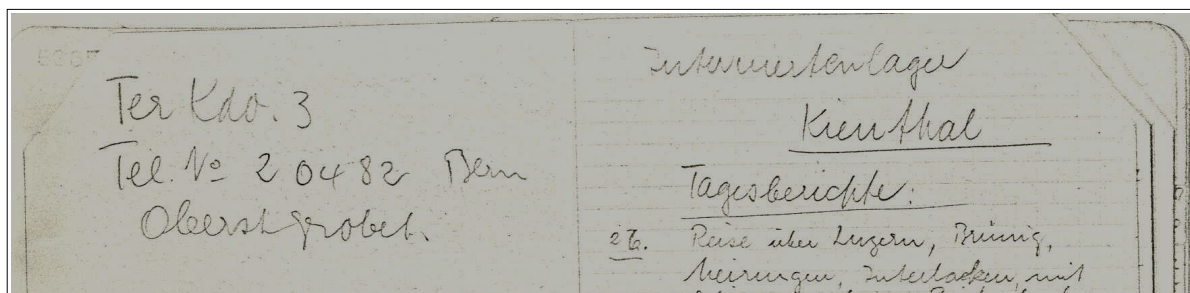 Ter Kdo. 3
Tel. No 2 04 82 Bern
Oberst Grobet.
Interniertenlager
Kienthal
Tagesberichte:
26. Reise über Luzern, Brünig,
Meiringen, Interlacken, mit